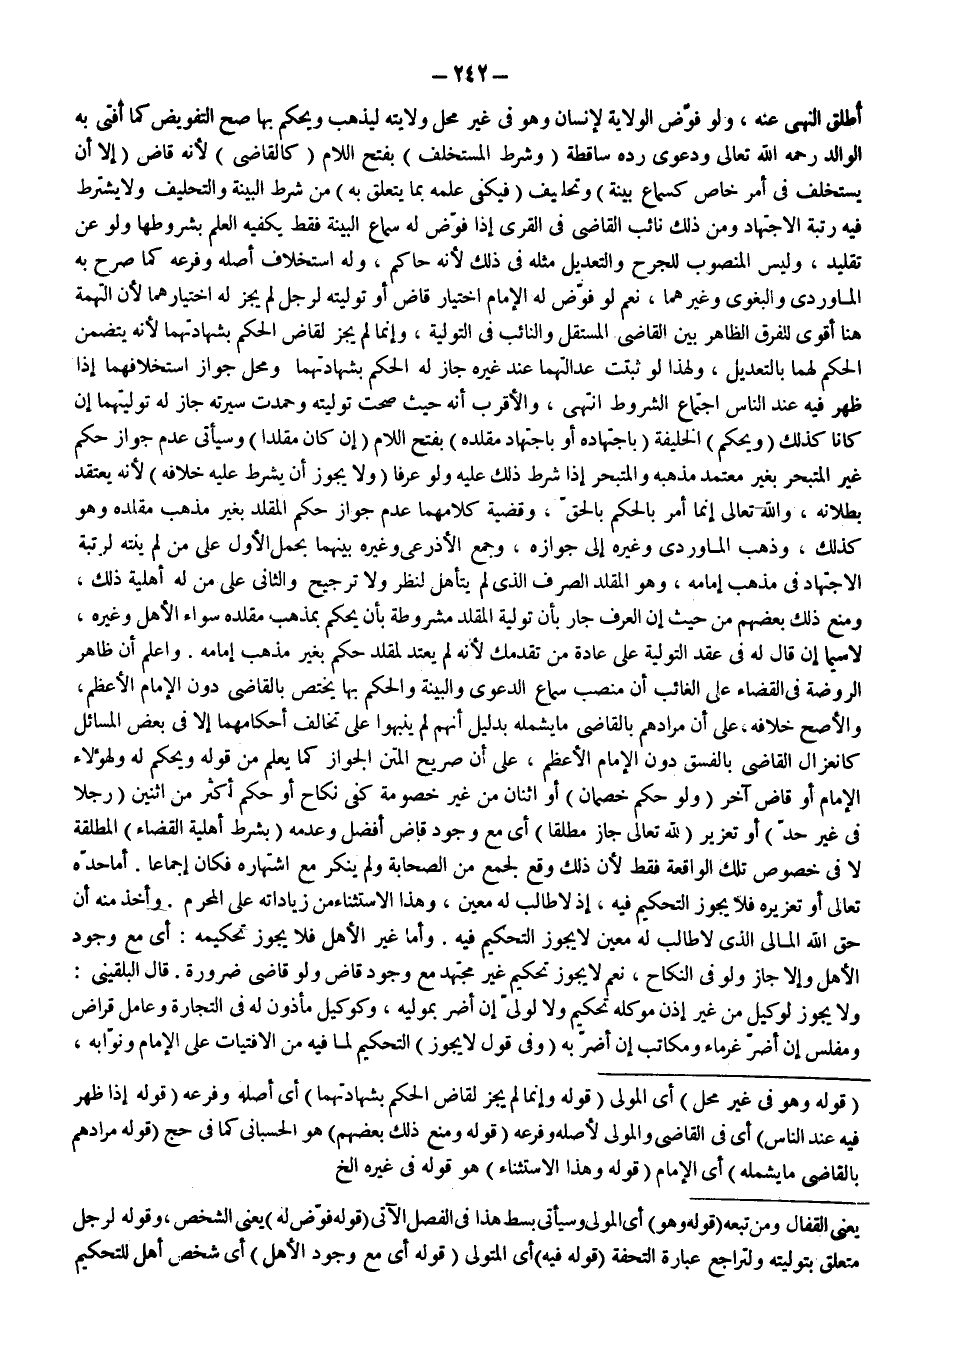 — ٢٤٢ —
أطلق النهى عنه ، ولو فوّض الولاية لإنسان وهو فى غير محل ولايته ليذهب ويحكم بها صح التفويض كما أفتى به
الوالد رحمه الله تعالى ودعوى رده ساقطة ( وشرط المستخلف ) بفتح اللام ( كالقاضى ) لأنه قاض ( إلا أن
يستخلف فى أمر خاص كسماع بينة ) وتحليف ( فيكفى علمه بما يتعلق به ) من شرط البينة والتحليف ولايشترط
فيه رتبة الاجتهاد ومن ذلك نائب القاضى فى القرى إذا فوّض له سماع البينة فقط يكفيه العلم بشروطها ولو عن
تقليد ، وليس المنصوب للجرح والتعديل مثله فى ذلك لأنه حاكم ، وله استخلاف أصله وفرعه كما صرح به
المـاوردى والبغوى وغيرهما ، نعم لو فوّض له الإمام اختيار قاض أو توليته لرجل لم يجز له اختيارهما لأن التهمة
هنا أقوى للفرق الظاهر بين القاضى المستقل والنائب فى التولية ، وإنما لم يجز لقاض الحكم بشهادتهما لأنه يتضمن
الحكم لهما بالتعديل ، ولهذا لو ثبتت عدالتهما عند غيره جاز له الحكم بشهادتهما ومحل جواز استخلافهما إذا
ظهر فيه عند الناس اجتماع الشروط انتهى ، والأقرب أنه حيث صحت توليته وحمدت سيرته جاز له توليتهما إن
كانا كذلك ( ويحكم ) الخليفة ( باجتهاده أو باجتهاد مقلده ) بفتح اللام ( إن كان مقلدا ) وسيأتى عدم جواز حكم
غير المتبحر بغير معتمد مذهبه والمتبحر إذا شرط ذلك عليه ولو عرفا ( ولا يجوز أن يشرط عليه خلافه ) لأنه يعتقد
بطلانه ، والله تعالى إنما أمر بالحكم بالحقّ ، وقضية كلامهما عدم جواز حكم المقلد بغير مذهب مقلده وهو
كذلك ، وذهب المـاوردى وغيره إلى جوازه ، وجمع الأذرعى وغيره بينهما بحمل الأول على من لم ينته لرتبة
الاجتهاد فى مذهب إمامه ، وهو المقلد الصرف الذى لم يتأهل لنظر ولا ترجيح والثانى على من له أهلية ذلك ،
ومنع ذلك بعضهم من حيث إن العرف جار بأن تولية المقلد مشروطة بأن يحكم بمذهب مقلده سواء الأهل وغيره ،
لاسيما إن قال له فى عقد التولية على عادة من تقدمك لأنه لم يعتد لمقلد حكم بغير مذهب إمامه . واعلم أن ظاهر
الروضة فى القضاء على الغائب أن منصب سماع الدعوى والبينة والحكم بها يختص بالقاضى دون الإمام الأعظم ،
والأصح خلافه ، على أن مرادهم بالقاضى مايشمله بدليل أنهم لم ينبهوا على تخالف أحكامهما إلا فى بعض المسائل
كانعزال القاضى بالفسق دون الإمام الأعظم ، على أن صريح المتن الجواز كما يعلم من قوله ويحكم له ولهؤلاء
الإمام أو قاض آخر ( ولو حكم خصمان ) أو اثنان من غير خصومة كفى نكاح أو حكم أكثر من اثنين ( رجلا
فى غير حدّ ) أو تعزير ( لله تعالى جاز مطلقا ) أى مع وجود قاض أفضل وعدمه ( بشرط أهلية القضاء ) المطلقة
لا فى خصوص تلك الواقعة فقط لأن ذلك وقع لجمع من الصحابة ولم ينكر مع اشتهاره فكان إجماعا . أما حدّه
تعالى أو تعزيره فلا يجوز التحكيم فيه ، إذ لاطالب له معين ، وهذا الاستثناء من زياداته على المحرم . وأخذ منه أن
حق الله المـالى الذى لاطالب له معين لايجوز التحكيم فيه . وأما غير الأهل فلا يجوز تحكيمه : أى مع وجود
الأهل وإلا جاز ولو فى النكاح ، نعم لايجوز تحكيم غير مجتهد مع وجود قاض ولو قاضى ضرورة . قال البلقينى :
ولا يجوز لوكيل من غير إذن موكله تحكيم ولا لولىّ إن أضر بموليه ، وكوكيل مأذون له فى التجارة وعامل قراض
ومفلس إن أضرّ غرماء ومكاتب إن أضرّ به ( وفى قول لايجوز ) التحكيم لمـا فيه من الافتيات على الإمام ونوّابه ،
( قوله وهو فى غير محل ) أى المولى ( قوله وإنما لم يجز لقاض الحكم بشهادتهما ) أى أصله وفرعه ( قوله إذا ظهر
فيه عند الناس ) أى فى القاضى والمولى لأصله وفرعه ( قوله ومنع ذلك بعضهم ) هو الحسبانى كما فى حج ( قوله مرادهم
بالقاضى مايشمله ) أى الإمام ( قوله وهذا الاستثناء ) هو قوله فى غيره الخ
يعنى القفال ومن تبعه ( قوله وهو ) أى المولى وسيأتى بسط هذا فى الفصل الآتى ( قوله فوّض له ) يعنى الشخص ، وقوله لرجل
متعلق بتوليته ولتراجع عبارة التحفة ( قوله فيه ) أى المتولى ( قوله أى مع وجود الأهل ) أى شخص أهل للتحكيم